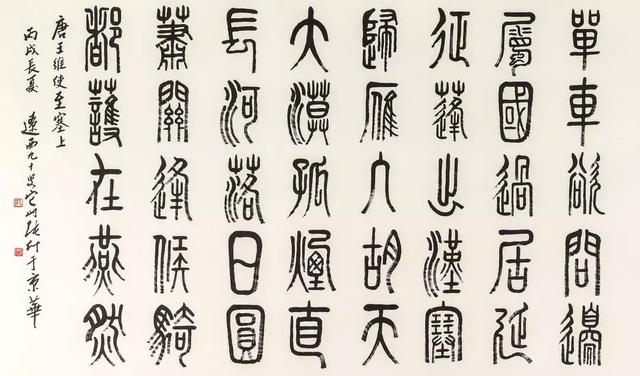 單車欲問邊
屬國過居延
征蓬出漢塞
歸雁入胡天
大漠孤煙直
長河落日圓
蕭關逢候騎
都護在燕然
唐王維使至塞上
丙戌長夏 遼西九十叟它山張仃于京華